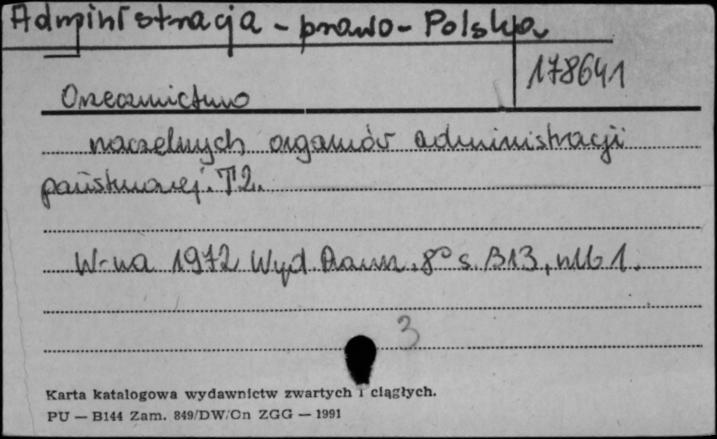 Administracja - prawo - Polska
178641
Orzecznictwo
naczelnych organów administracji
państwowej. T 2.
W-wa 1972 Wyd. Prawn. 8° s. 813, nlb 1.
3
Karta katalogowa wydawnictw zwartych i ciągłych.
PU — B144 Zam. 849/DW/Cn ZGG — 1991